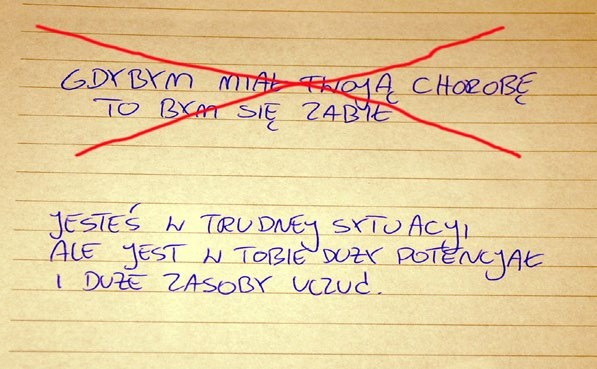 GDYBYM MIAŁ TWOJĄ CHOROBĘ
TO BYM SIĘ ZABIŁ
JESTEŚ W TRUDNEJ SYTUACJI,
ALE JEST W TOBIE DUŻY POTENCJAŁ
I DUŻE ZASOBY UCZUĆ.